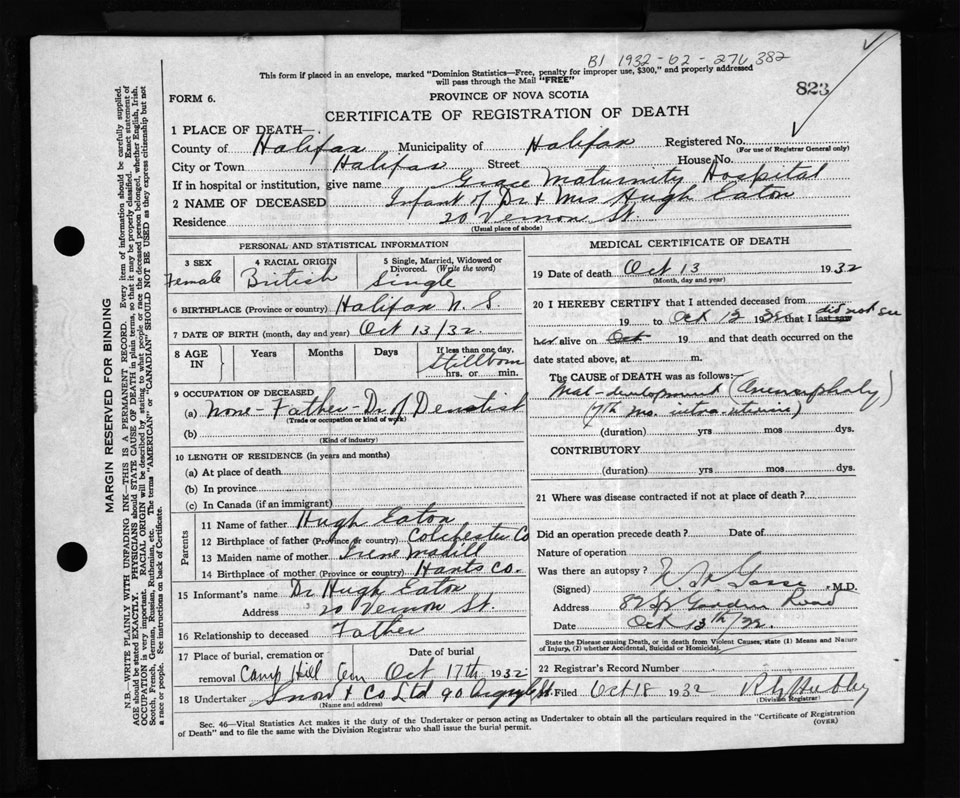 B1 1932-02-276 382
This form if placed in an envelope, marked "Dominion Statistics—Free, penalty for improper use, $300," and properly addressed
will pass through the Mail "FREE"
823
FORM 6.
PROVINCE OF NOVA SCOTIA
CERTIFICATE OF REGISTRATION OF DEATH
1 PLACE OF DEATH—
County of Halifax Municipality of Halifax Registered No.
(For use of Registrar General only)
City or Town Halifax Street House No.
If in hospital or institution, give name Grace Maturnity Hospital
2 NAME OF DECEASED Infant of Dr & Mrs Hugh Eaton
Residence 20 Vernon St.
(Usual place of abode)
PERSONAL AND STATISTICAL INFORMATION
3 SEX Female
4 RACIAL ORIGIN British
5 Single, Married, Widowed or
Divorced. (Write the word)
Single
6 BIRTHPLACE (Province or country) Halifax N. S.
7 DATE OF BIRTH (month, day and year) Oct 13/32.
8 AGE IN Years Months Days If less than one day,
Stillborn
hrs. or min.
9 OCCUPATION OF DECEASED
(a) None - Father - Dr of Denstist
(Trade or occupation or kind of work)
(b)
(Kind of industry)
10 LENGTH OF RESIDENCE (in years and months)
(a) At place of death
(b) In province
(c) In Canada (if an immigrant)
Parents
11 Name of father Hugh Eaton
12 Birthplace of father (Province or country) Colchester Co
13 Maiden name of mother Irene Madill
14 Birthplace of mother (Province or country) Hants Co.
15 Informant's name Dr Hugh Eaton
Address 20 Vernon St.
16 Relationship to deceased Father
17 Place of burial, cremation or removal Date of burial
Camp Hill Cem Oct 17th 1932
18 Undertaker Snow & Co Ltd 90 Argyle St.
(Name and address)
MEDICAL CERTIFICATE OF DEATH
19 Date of death Oct 13 1932
(Month, day and year)
20 I HEREBY CERTIFY that I attended deceased from
19 to Oct 13 1932 that I last saw did not see
her alive on Oct 19 and that death occurred on the
date stated above, at m.
The CAUSE of DEATH was as follows:—
Mal-development (Anencephaly)
(7th mo. intra-uterine)
(duration) yrs mos dys.
CONTRIBUTORY
(duration) yrs mos dys.
21 Where was disease contracted if not at place of death?
Did an operation precede death? Date of
Nature of operation
Was there an autopsy?
(Signed) Gosse M.D.
Address 82 Spr Garden Road
Date Oct 13th/32.
State the Disease causing Death, or in death from Violent Causes, state (1) Means and Nature
of Injury, (2) whether Accidental, Suicidal or Homicidal.
22 Registrar's Record Number
Filed Oct 18 1932
(Division Registrar)
Sec. 46—Vital Statistics Act makes it the duty of the Undertaker or person acting as Undertaker to obtain all the particulars required in the "Certificate of Registration
of Death" and to file the same with the Division Registrar who shall issue the burial permit.
(OVER)
MARGIN RESERVED FOR BINDING
N.B.—WRITE PLAINLY WITH UNFADING INK—THIS IS A PERMANENT RECORD. Every item of information should be carefully supplied.
AGE should be stated EXACTLY. PHYSICIANS should STATE CAUSE OF DEATH in plain terms, so that it may be properly classified. Exact statement of
OCCUPATION is very important. RACIAL ORIGIN will be described by stating to what people or race the deceased person belonged, whether English, Irish,
Scotch, French, German, Russian, Ruthenian, etc. The terms "AMERICAN" or "CANADIAN" SHOULD NOT BE USED as they express citizenship but not
a race or people. See instructions on back of Certificate.